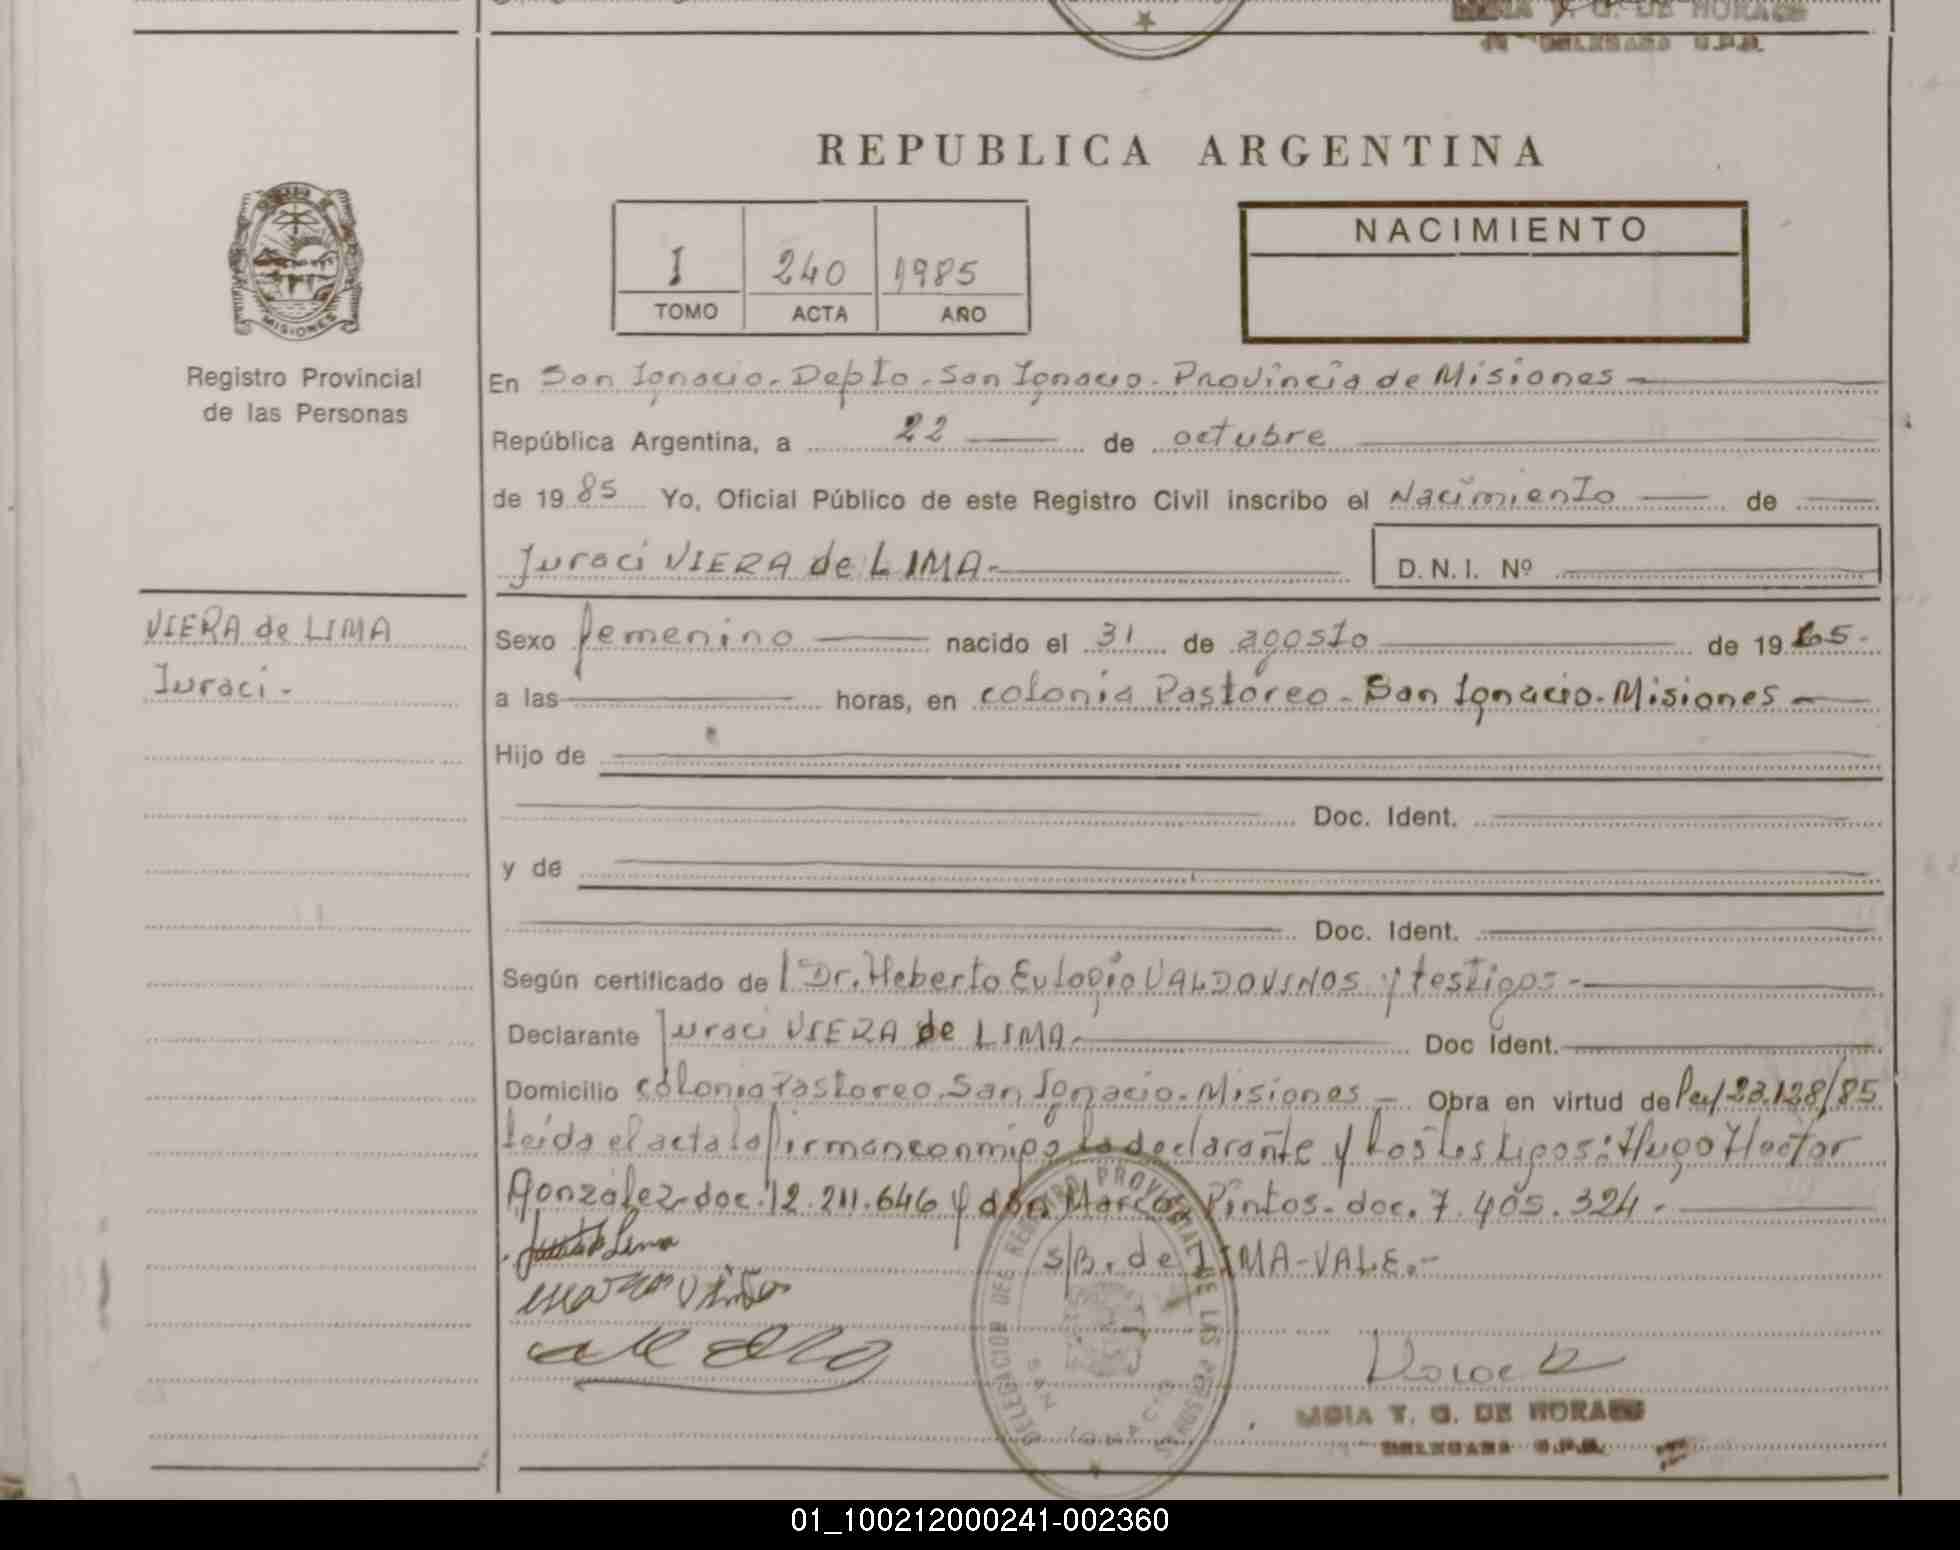 DE MORAES
DELEGADA
REPUBLICA ARGENTINA
I 240 1985
TOMO ACTA AÑO
NACIMIENTO
MISIONES
Registro Provincial
de las Personas
En San Ignacio. Depto. San Ignacio. Provincia de Misiones
República Argentina, a 22 de octubre
de 1985 Yo, Oficial Público de este Registro Civil inscribo el Nacimiento de
Juraci VIERA de LIMA.
D.N.I. Nº
VIERA de LIMA
Juraci -
Sexo femenino nacido el 31 de agosto de 1965.
a las horas, en colonia Pastoreo - San Ignacio. Misiones
Hijo de
Doc. Ident.
y de
Doc. Ident.
Según certificado de Dr. Heberto Eulogio VALDOVINOS y testigos -
Declarante Juraci VIERA de LIMA. Doc Ident.
Domicilio colonia Pastoreo. San Ignacio. Misiones - Obra en virtud de Ley 23.128/85
leída el acta la firman conmigo la declarante y los testigos: Hugo Hector
Gonzalez - doc. 12.211.646 y don Marcos Pintos - doc. 7.405.324 -
Lima
S/B. de LIMA - VALE. -
DELEGACION DEL REGISTRO PROVINCIAL DE LAS PERSONAS
SAN IGNACIO
T. G. DE MORAES
DELEGADA
01_100212000241-002360